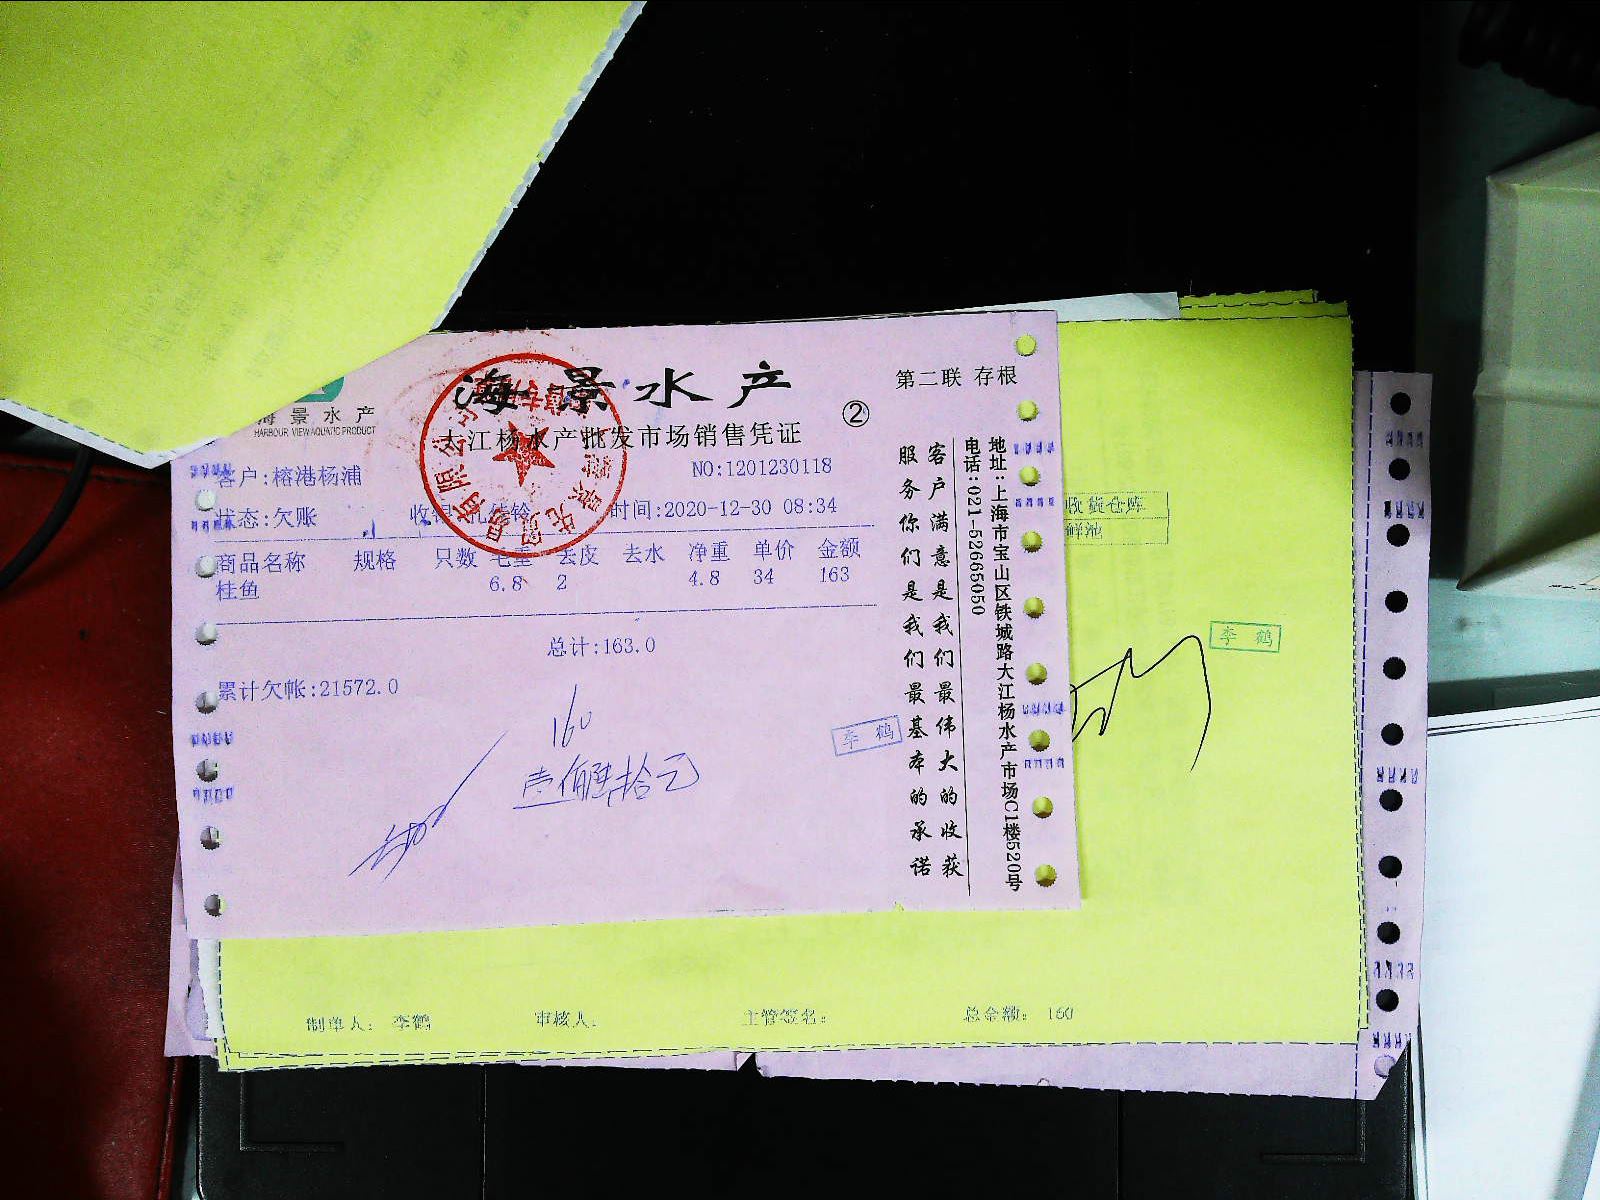 海景水产
第二联 存根
海景水产
HARBOUR VIEW AQUATIC PRODUCT
②
大江杨水产批发市场销售凭证
客户:榕港杨浦
NO:1201230118
状态:欠账
时间:2020-12-30 08:34
商品名称 规格 只数 毛重 去皮 去水 净重 单价 金额
桂鱼 6.8 2 4.8 34 163
总计:163.0
累计欠帐:21572.0
160
壹佰陆拾元
李鹤
客户满意是我们最伟大的收获
服务你们是我们最基本的承诺
地址:上海市宝山区铁城路大江杨水产市场C1楼520号
电话:021-52665050
收货仓库
鲜池
李鹤
制单人: 李鹤 审核人: 主管签名: 总金额: 160